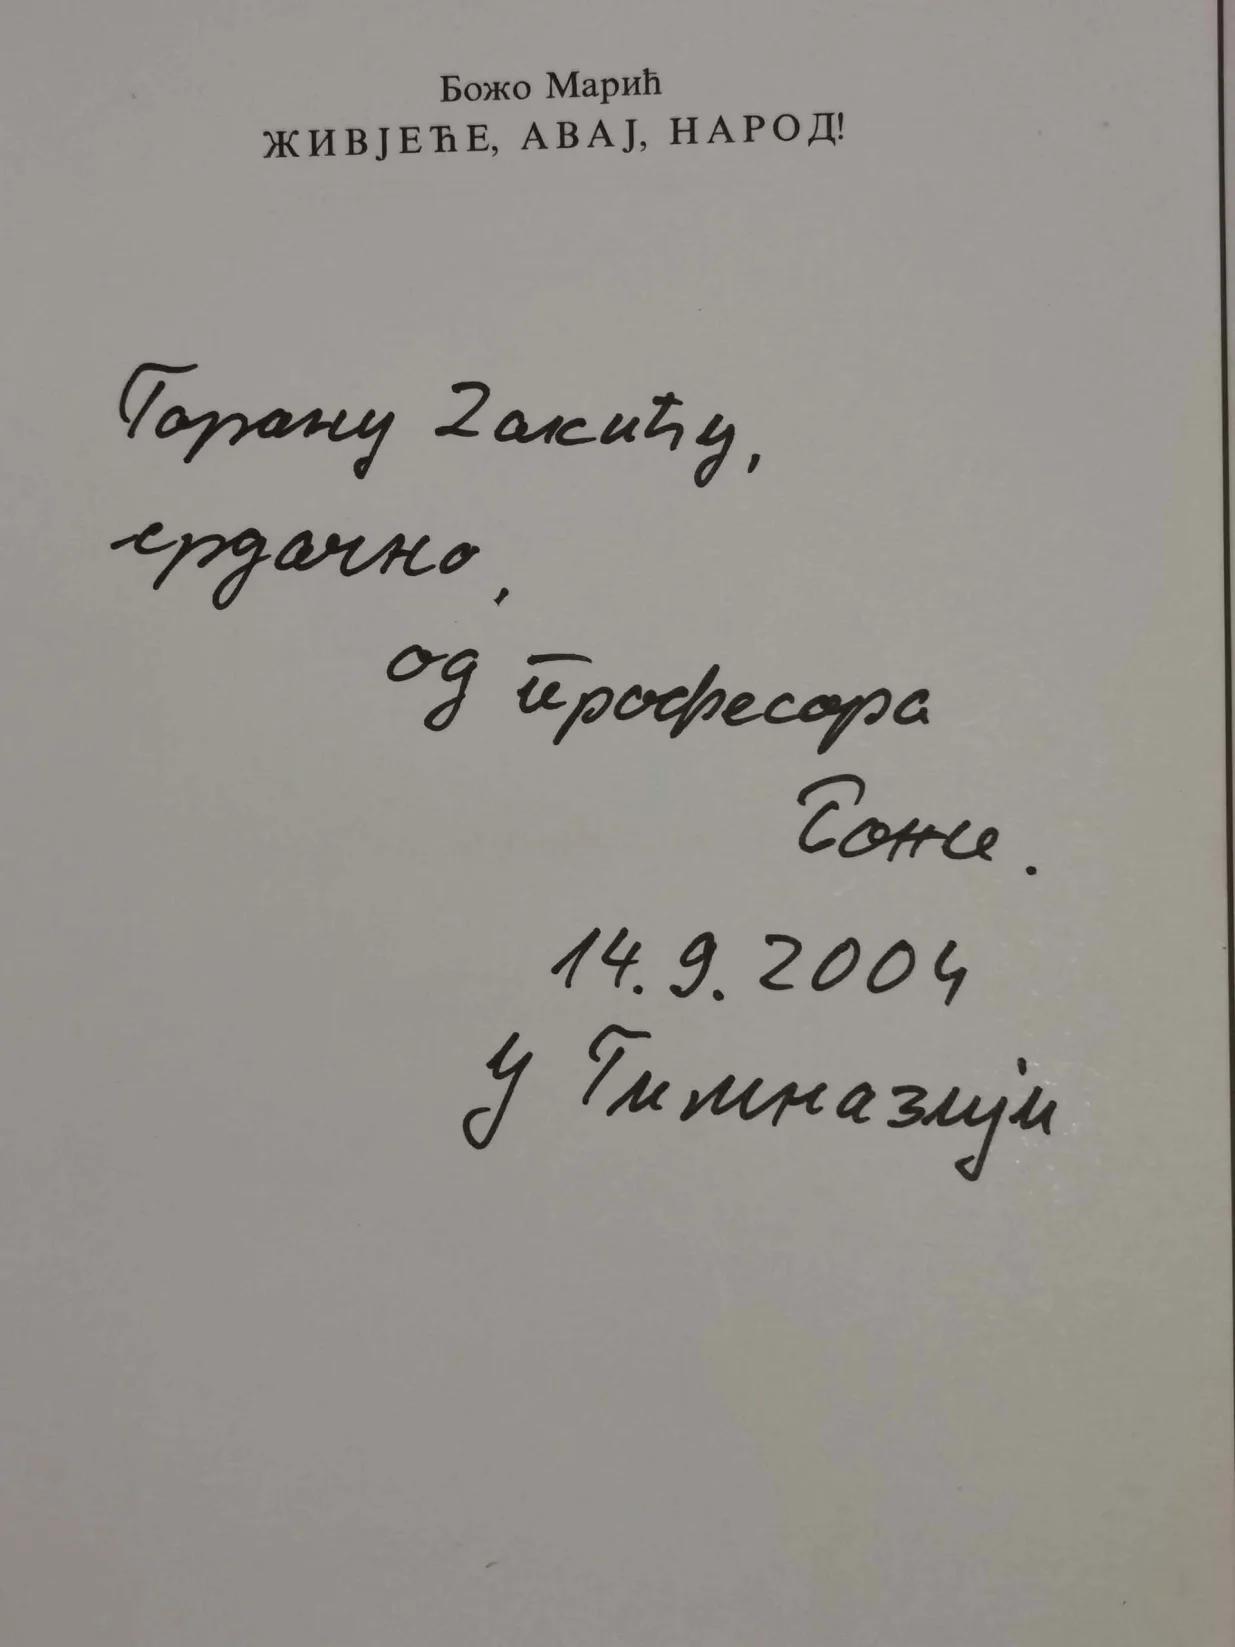 Божо Марић
ЖИВЈЕЋЕ, АВАЈ, НАРОД!
Горану Закићу,
срдачно,
од професора
Соње.
14. 9. 2004
у Гимназији